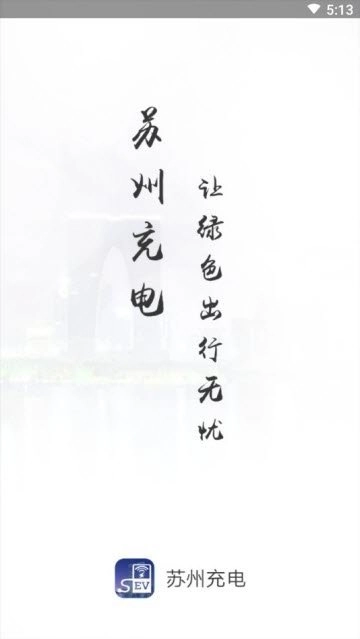 5:13
苏州充电
让绿色出行无忧
SEV
苏州充电